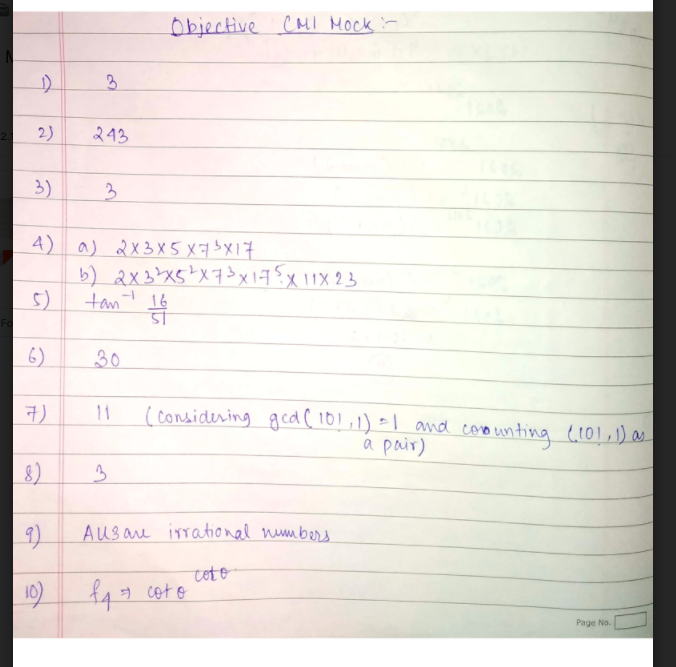 Objective CMI Mock :-
1) 3
2) 243
3) 3
4) a) 2×3×5×7³×17
b) 2×3²×5²×7³×17⁵×11×23
5) tan⁻¹ 16/51
6) 30
7) 11 (considering gcd(10!,1)=1 and counting (10!,1) as
a pair)
8) 3
9) All 3 are irrational numbers
10) f₄ ⇒ cot θ^cot θ
Page No.